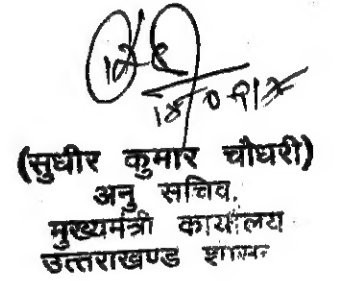 (सुधीर कुमार चौधरी)
अनु सचिव,
मुख्यमंत्री कार्यालय
उत्तराखण्ड शासन